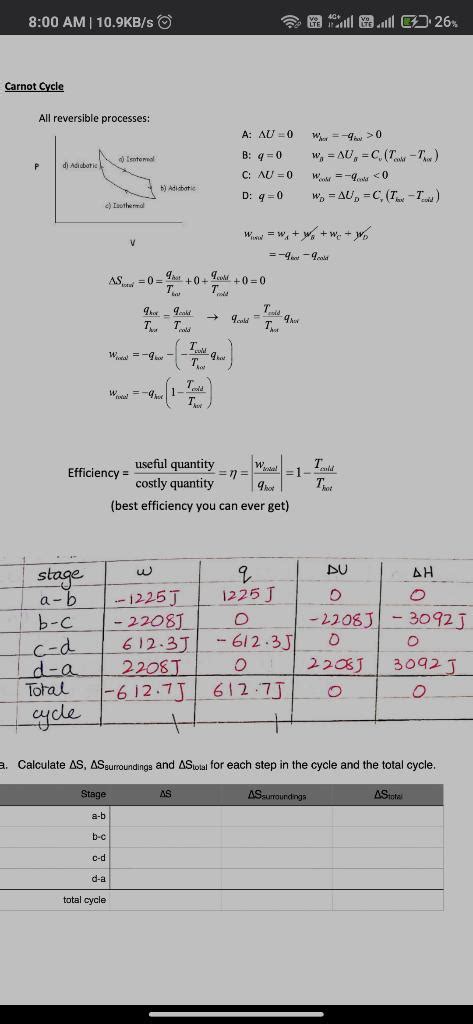 8:00 AM | 10.9KB/s
Vo LTE 4G+ Vo LTE 26%
Carnot Cycle
All reversible processes:
P
a) Isotermal
d) Adiabatic
b) Adiabatic
c) Isothermal
V
A: ΔU = 0 w_hot = −q_hot > 0
B: q = 0 w_B = ΔU_B = C_v (T_cold − T_hot)
C: ΔU = 0 w_cold = −q_cold < 0
D: q = 0 w_D = ΔU_D = C_v (T_hot − T_cold)
w_total = w_A + w_B + w_C + w_D
= −q_hot − q_cold
ΔS_total = 0 = q_hot/T_hot + 0 + q_cold/T_cold + 0 = 0
q_hot/T_hot = q_cold/T_cold → q_cold = T_cold/T_hot q_hot
w_total = −q_hot − (−T_cold/T_hot q_hot)
w_total = −q_hot (1 − T_cold/T_hot)
Efficiency = useful quantity/costly quantity = η = |w_total/q_hot| = 1 − T_cold/T_hot
(best efficiency you can ever get)
stage w q DU ΔH
a-b -1225J 1225J 0 0
b-c -2208J 0 -2208J -3092J
c-d 612.3J -612.3J 0 0
d-a 2208J 0 2208J 3092J
Total cycle -612.7J 612.7J 0 0
a. Calculate ΔS, ΔSsurroundings and ΔStotal for each step in the cycle and the total cycle.
Stage ΔS ΔSsurroundings ΔStotal
a-b
b-c
c-d
d-a
total cycle